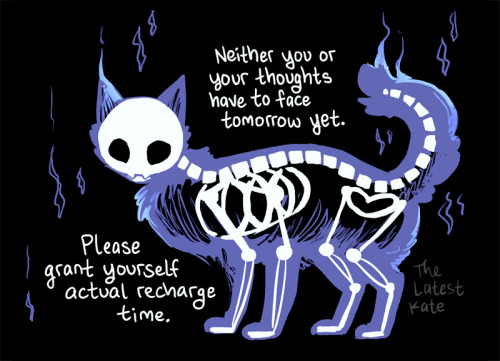 Neither you or
your thoughts
have to face
tomorrow yet.
Please
grant yourself
actual recharge
time.
The
Latest
Kate